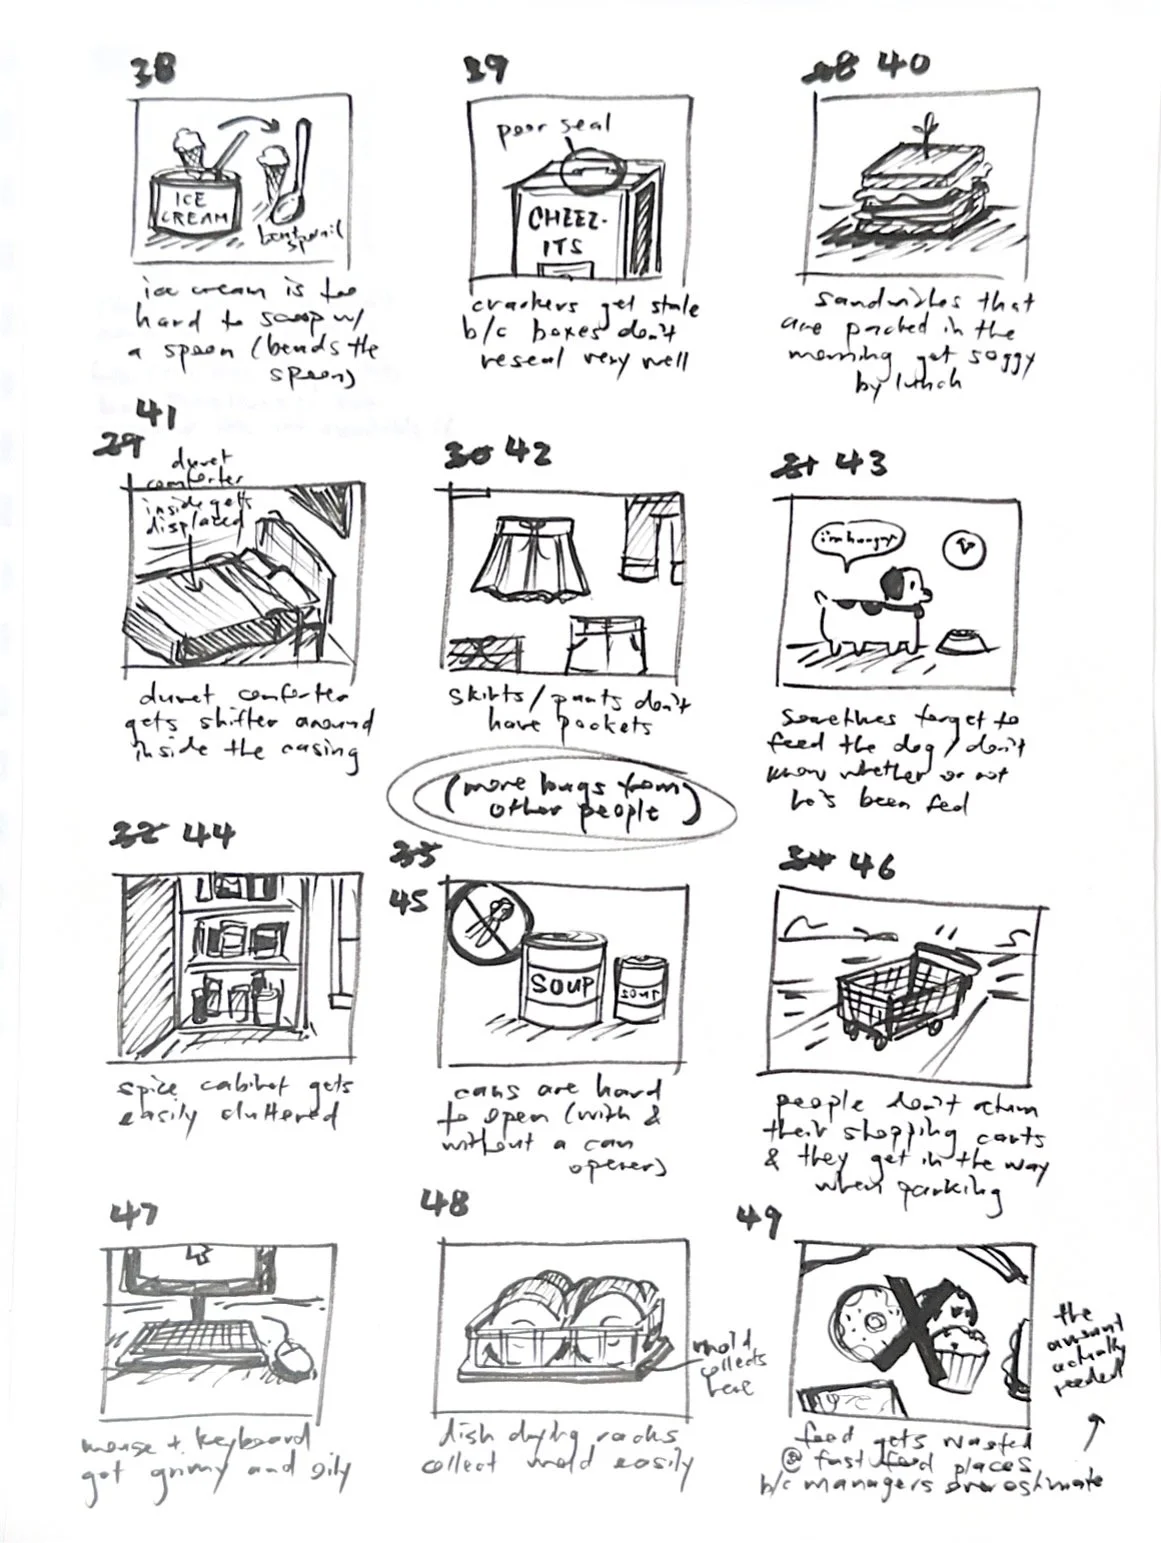 38
ICE
CREAM
bent spoon
ice cream is too
hard to scoop w/
a spoon (bends the
spoon)
39
poor seal
CHEEZ-
ITS
crackers get stale
b/c boxes don't
reseal very well
40
sandwiches that
are packed in the
morning get soggy
by lunch
41
29
duvet
comforter
inside gets
displaced
duvet comforter
gets shifter around
inside the casing
30 42
skirts/pants don't
have pockets
31 43
i'm hungry
sometimes forget to
feed the dog/don't
know whether or not
he's been fed
(more bugs from
other people)
32 44
spice cabinet gets
easily cluttered
35
45
SOUP
SOUP
cans are hard
to open (with &
without a can
opener)
34 46
people don't return
their shopping carts
& they get in the way
when parking
47
mouse + keyboard
get grimy and oily
48
mold
collects
here
dish drying racks
collect mold easily
49
the
amount
actually
needed
food gets wasted
@ fast food places
b/c managers overestimate